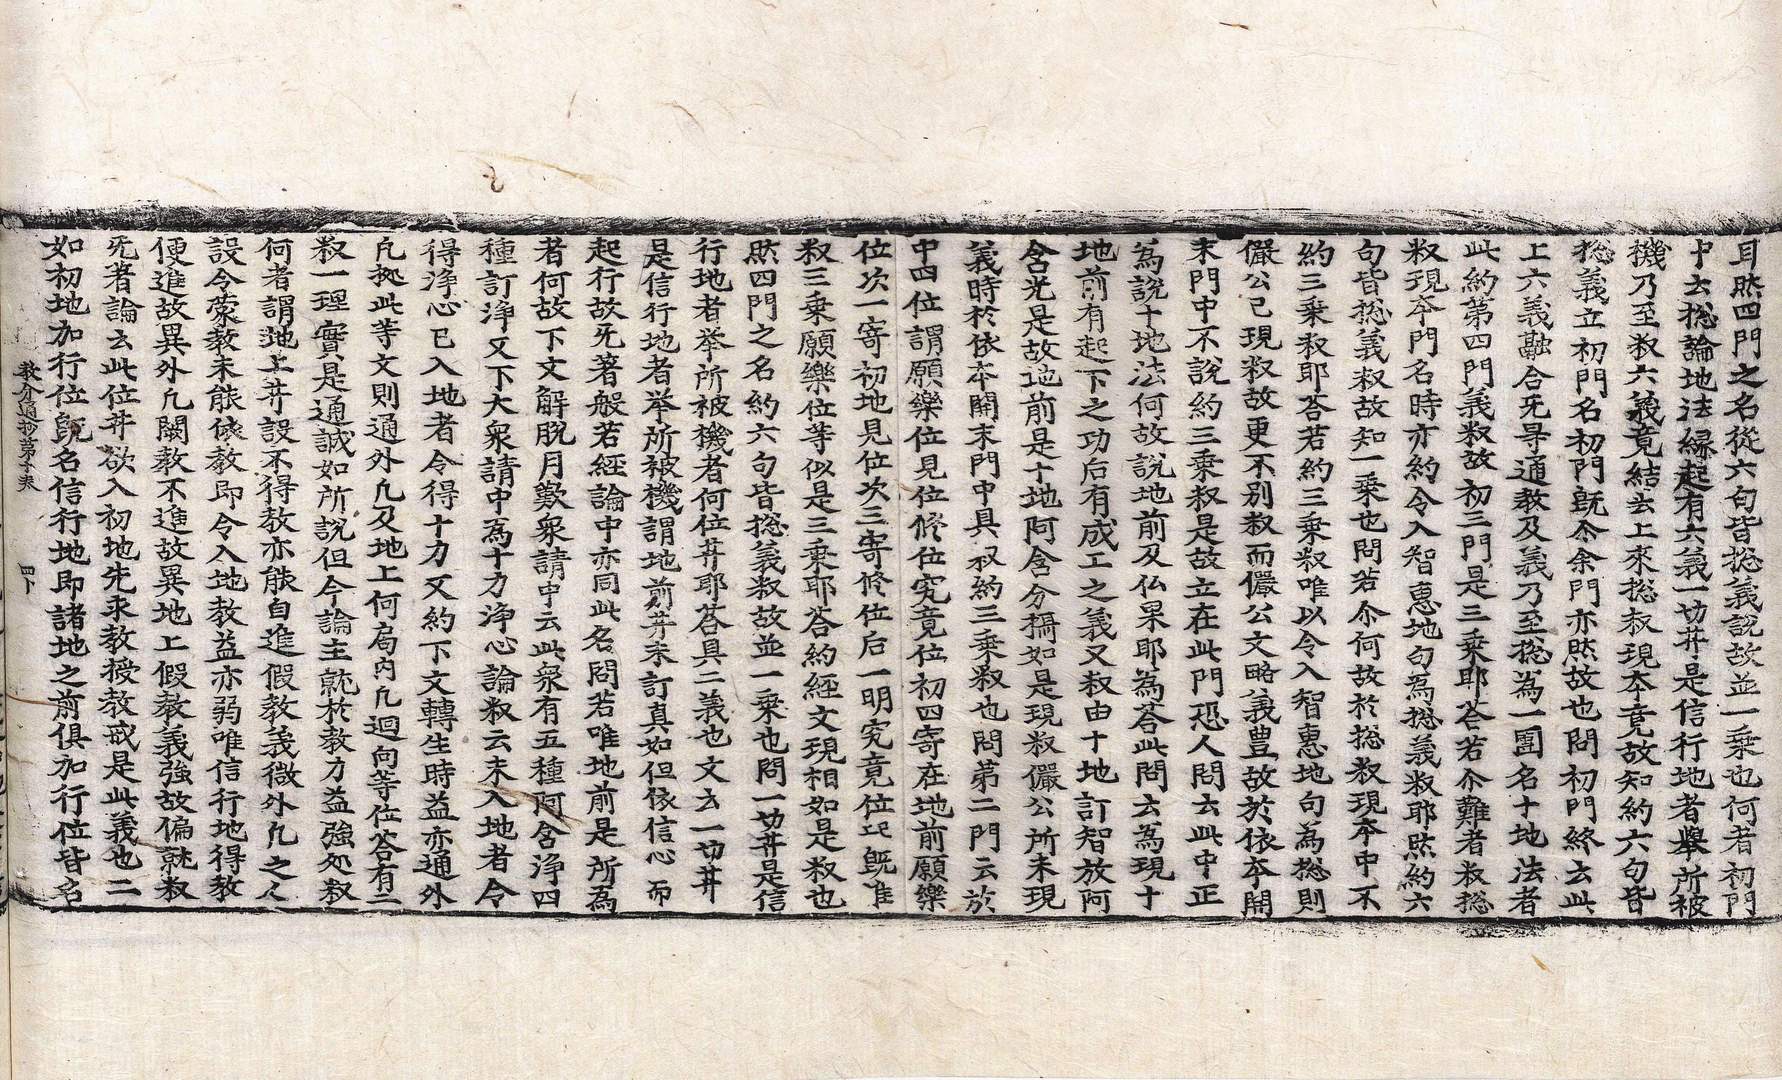 耳㸃四門之名從六句皆捴義說故並一乘也何者初門
中云捴論地法緣起有六義一切菩是信行地者舉所被
機乃至叙六義竟結云上來捴叙現本竟故知約六句皆
捴義立初門名初門旣尒余門亦然故也問初門終云此
上六義融合无㝵通教及義乃至捴為一圓名十地法者
此約第四門義叙故初三門是三乘耶荅若尒難者叙捴
叙現夲門名時亦約令入智恵地句為捴義叙耶然約六
句皆捴義叙故知一乘也問若尒何故於捴叙現夲中不
約三乘叙耶荅若約三乘叙唯以令入智惠地句為捴則
儼公已現叙故更不別叙而儼公文略義豊故於依夲開
末門中不說約三乘叙是故立在此門恐人問云此中正
為說十地法何故說地前及仏果耶為荅此問云為現十
地前有起下之功后有成工之義又叙由十地訂智放阿
含光是故地前是十地阿含分稱如是現叙儼公所未現
義時於依夲開末門中具叙約三乘叙也問第二門云於
中四位謂願樂位見位修位究竟位初四寄在地前願樂
位次一寄初地見位次三寄修位后一明究竟位㐌旣准
叙三乘願樂位等似是三乘耶荅約經文現相如是叙也
然四門之名約六句皆捴義叙故並一乘也問一切菩是信
行地者举所被機者何位菩耶荅具二義也文云一切菩
是信行地者举所被機謂地前菩未訂真如但依信心而
起行故无著般若經論中亦同此名問若唯地前是所為
者何故下文解脫月歎衆請中云此衆有五種阿含淨四
種訂淨又下大衆請中為十力淨心論叙云未入地者令
得淨心已入地者令得十力又約下文轉生時益亦通外
凡㨿此等文則通外凡及地上何局內凡廻向等位荅有二
叙一理實是通誠如所說但今論主就於教力益強処叙
何者謂地上菩設不得教亦能自進假教義微外凡之人
設令蒙教未能依教即令入地教益亦弱唯信行地得教
便進故異外凡闕教不進故異地上假教義強故偏就叙
无著論云此位菩欲入初地先求教授教戒是此義也二
如初地加行位旣名信行地即諸地之前俱加行位皆名
教分通抄第十末　四卜